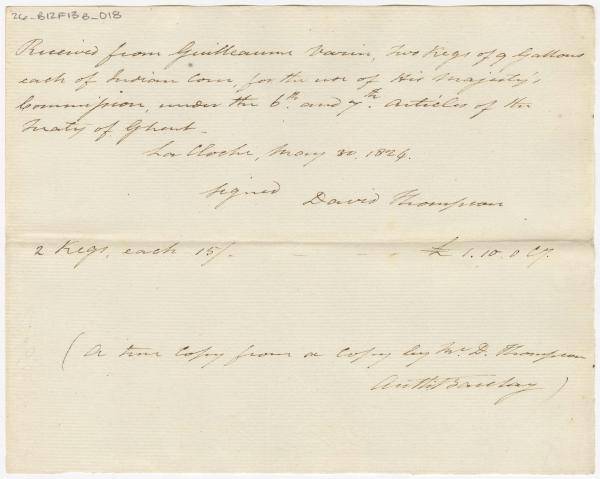 26-B12F13B-018
Received from Guilleaume Varin, two Kegs of 9 Gallons
each of Indian Corn, for the use of His Majesty's
Commission, under the 6th. and 7th. Articles of the
Treaty of Ghent.
La Cloche, May 30. 1824.
signed David Thompson
2 Kegs, each 15/. - - - £ 1.10.0 Cy.
(A true Copy from a Copy by Mr. D. Thompson
Anth: Barclay)